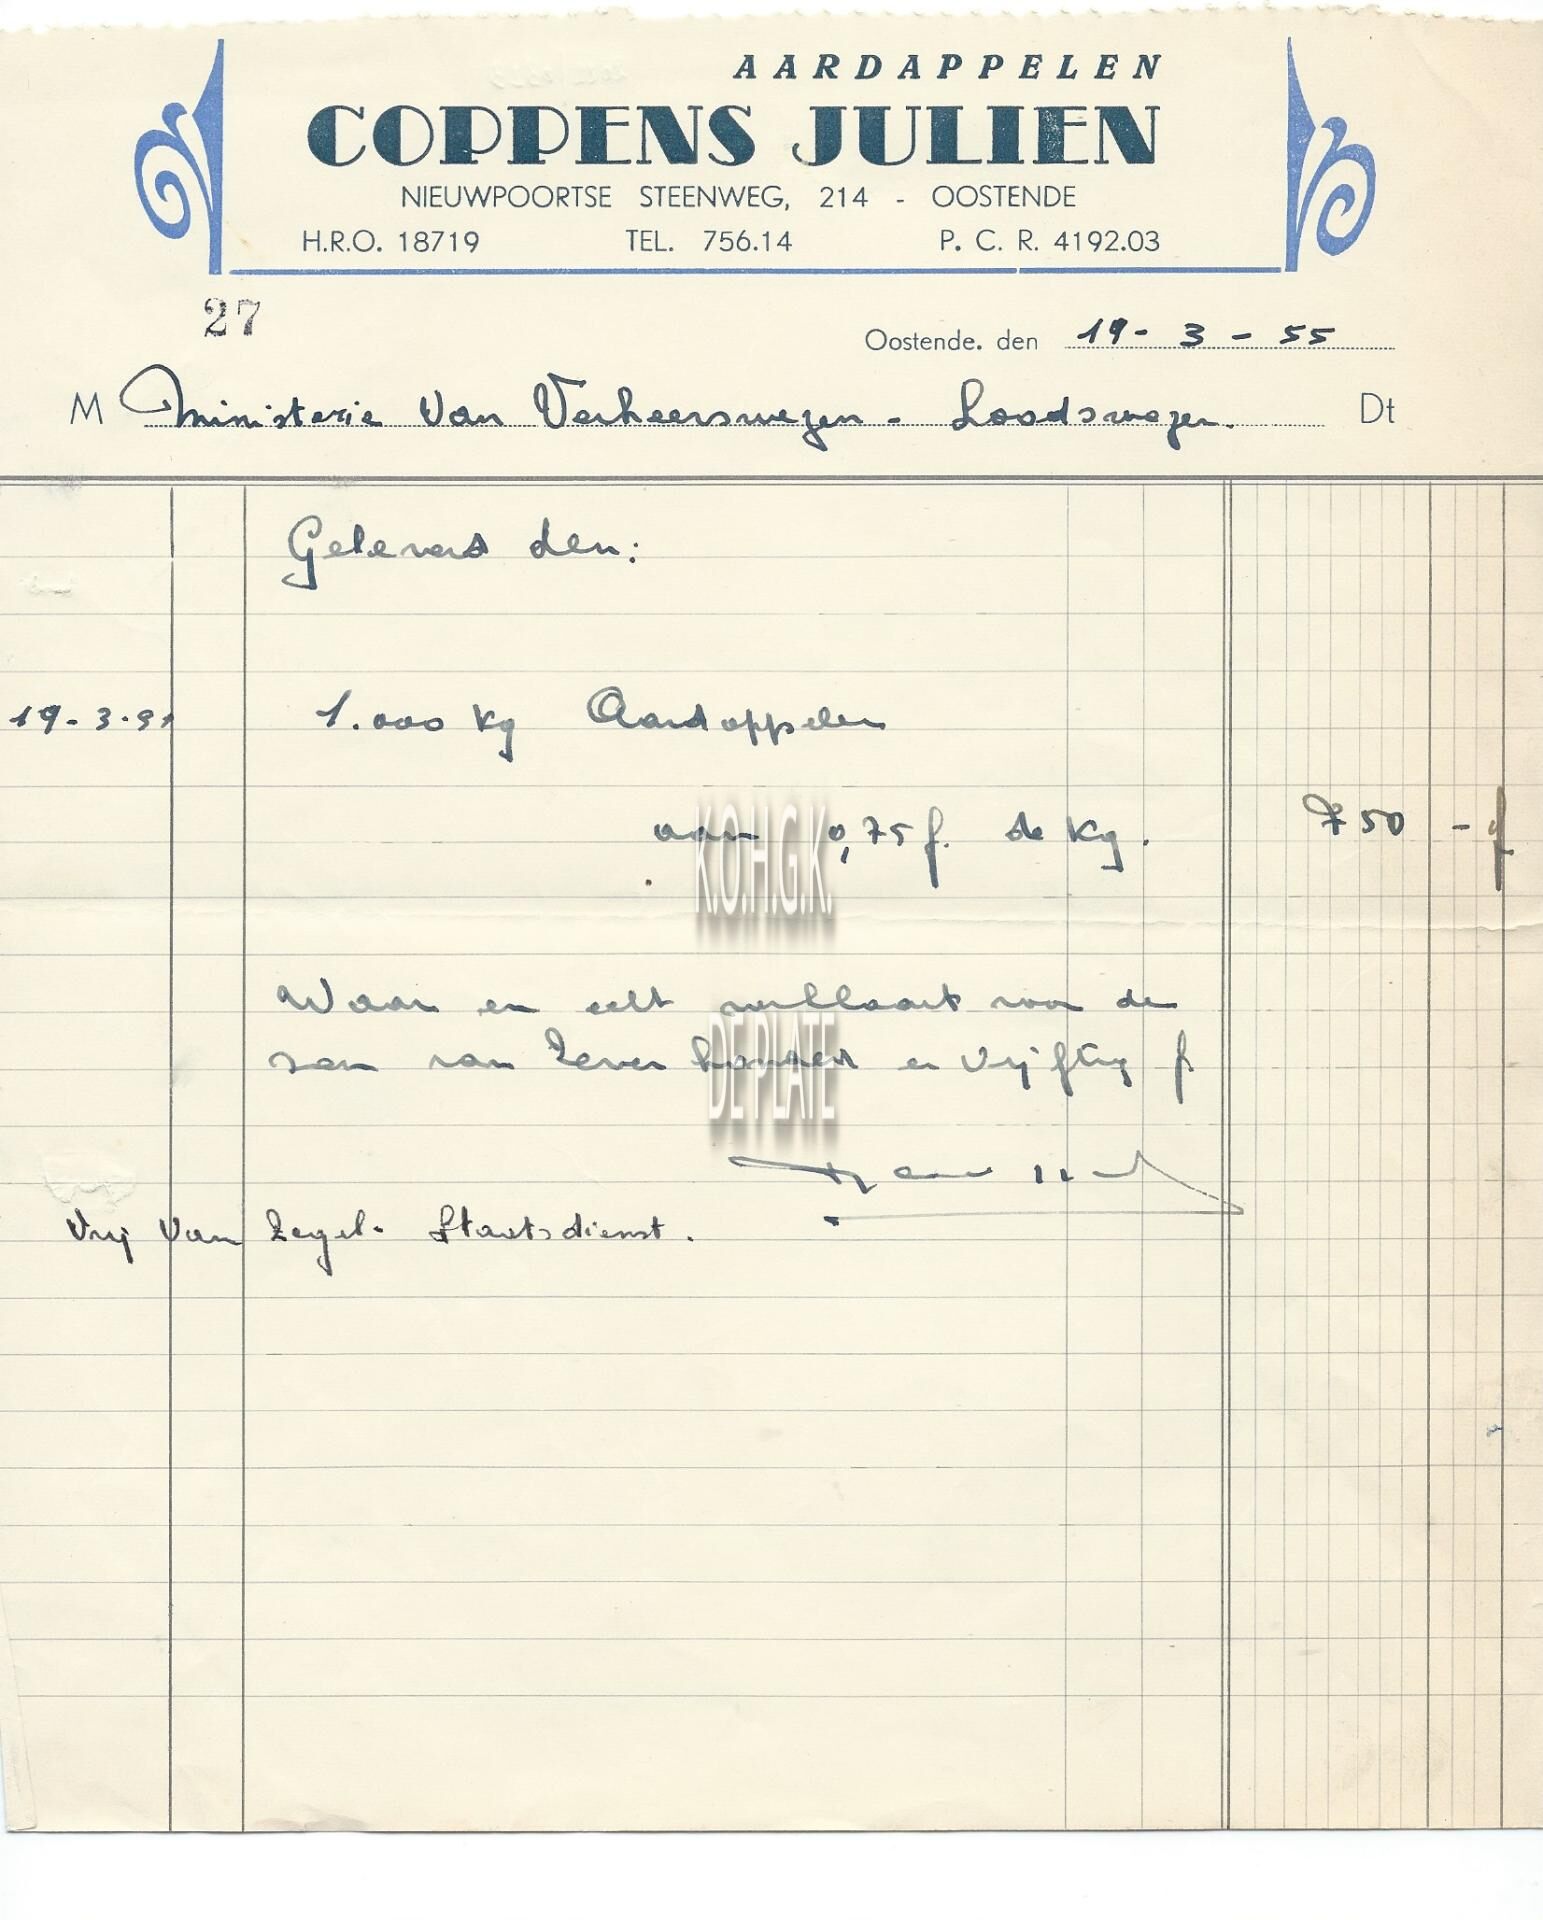 AARDAPPELEN
COPPENS JULIEN
NIEUWPOORTSE STEENWEG, 214 - OOSTENDE
H.R.O. 18719 TEL. 756.14 P. C. R. 4192.03
27
Oostende. den 19-3-55
M Ministerie Van Verkeerswezen - Loodswezen. Dt
Geleverd den:
19-3-55 1.000 Kg Aardappelen
aan 0,75 f. de Kg. 750 - f
K.O.H.G.K.
Waar en echt verklaart voor de
DE PLATE
som van Zeven honderd en vijftig f
Vrij Van Zegel. Staatsdienst.